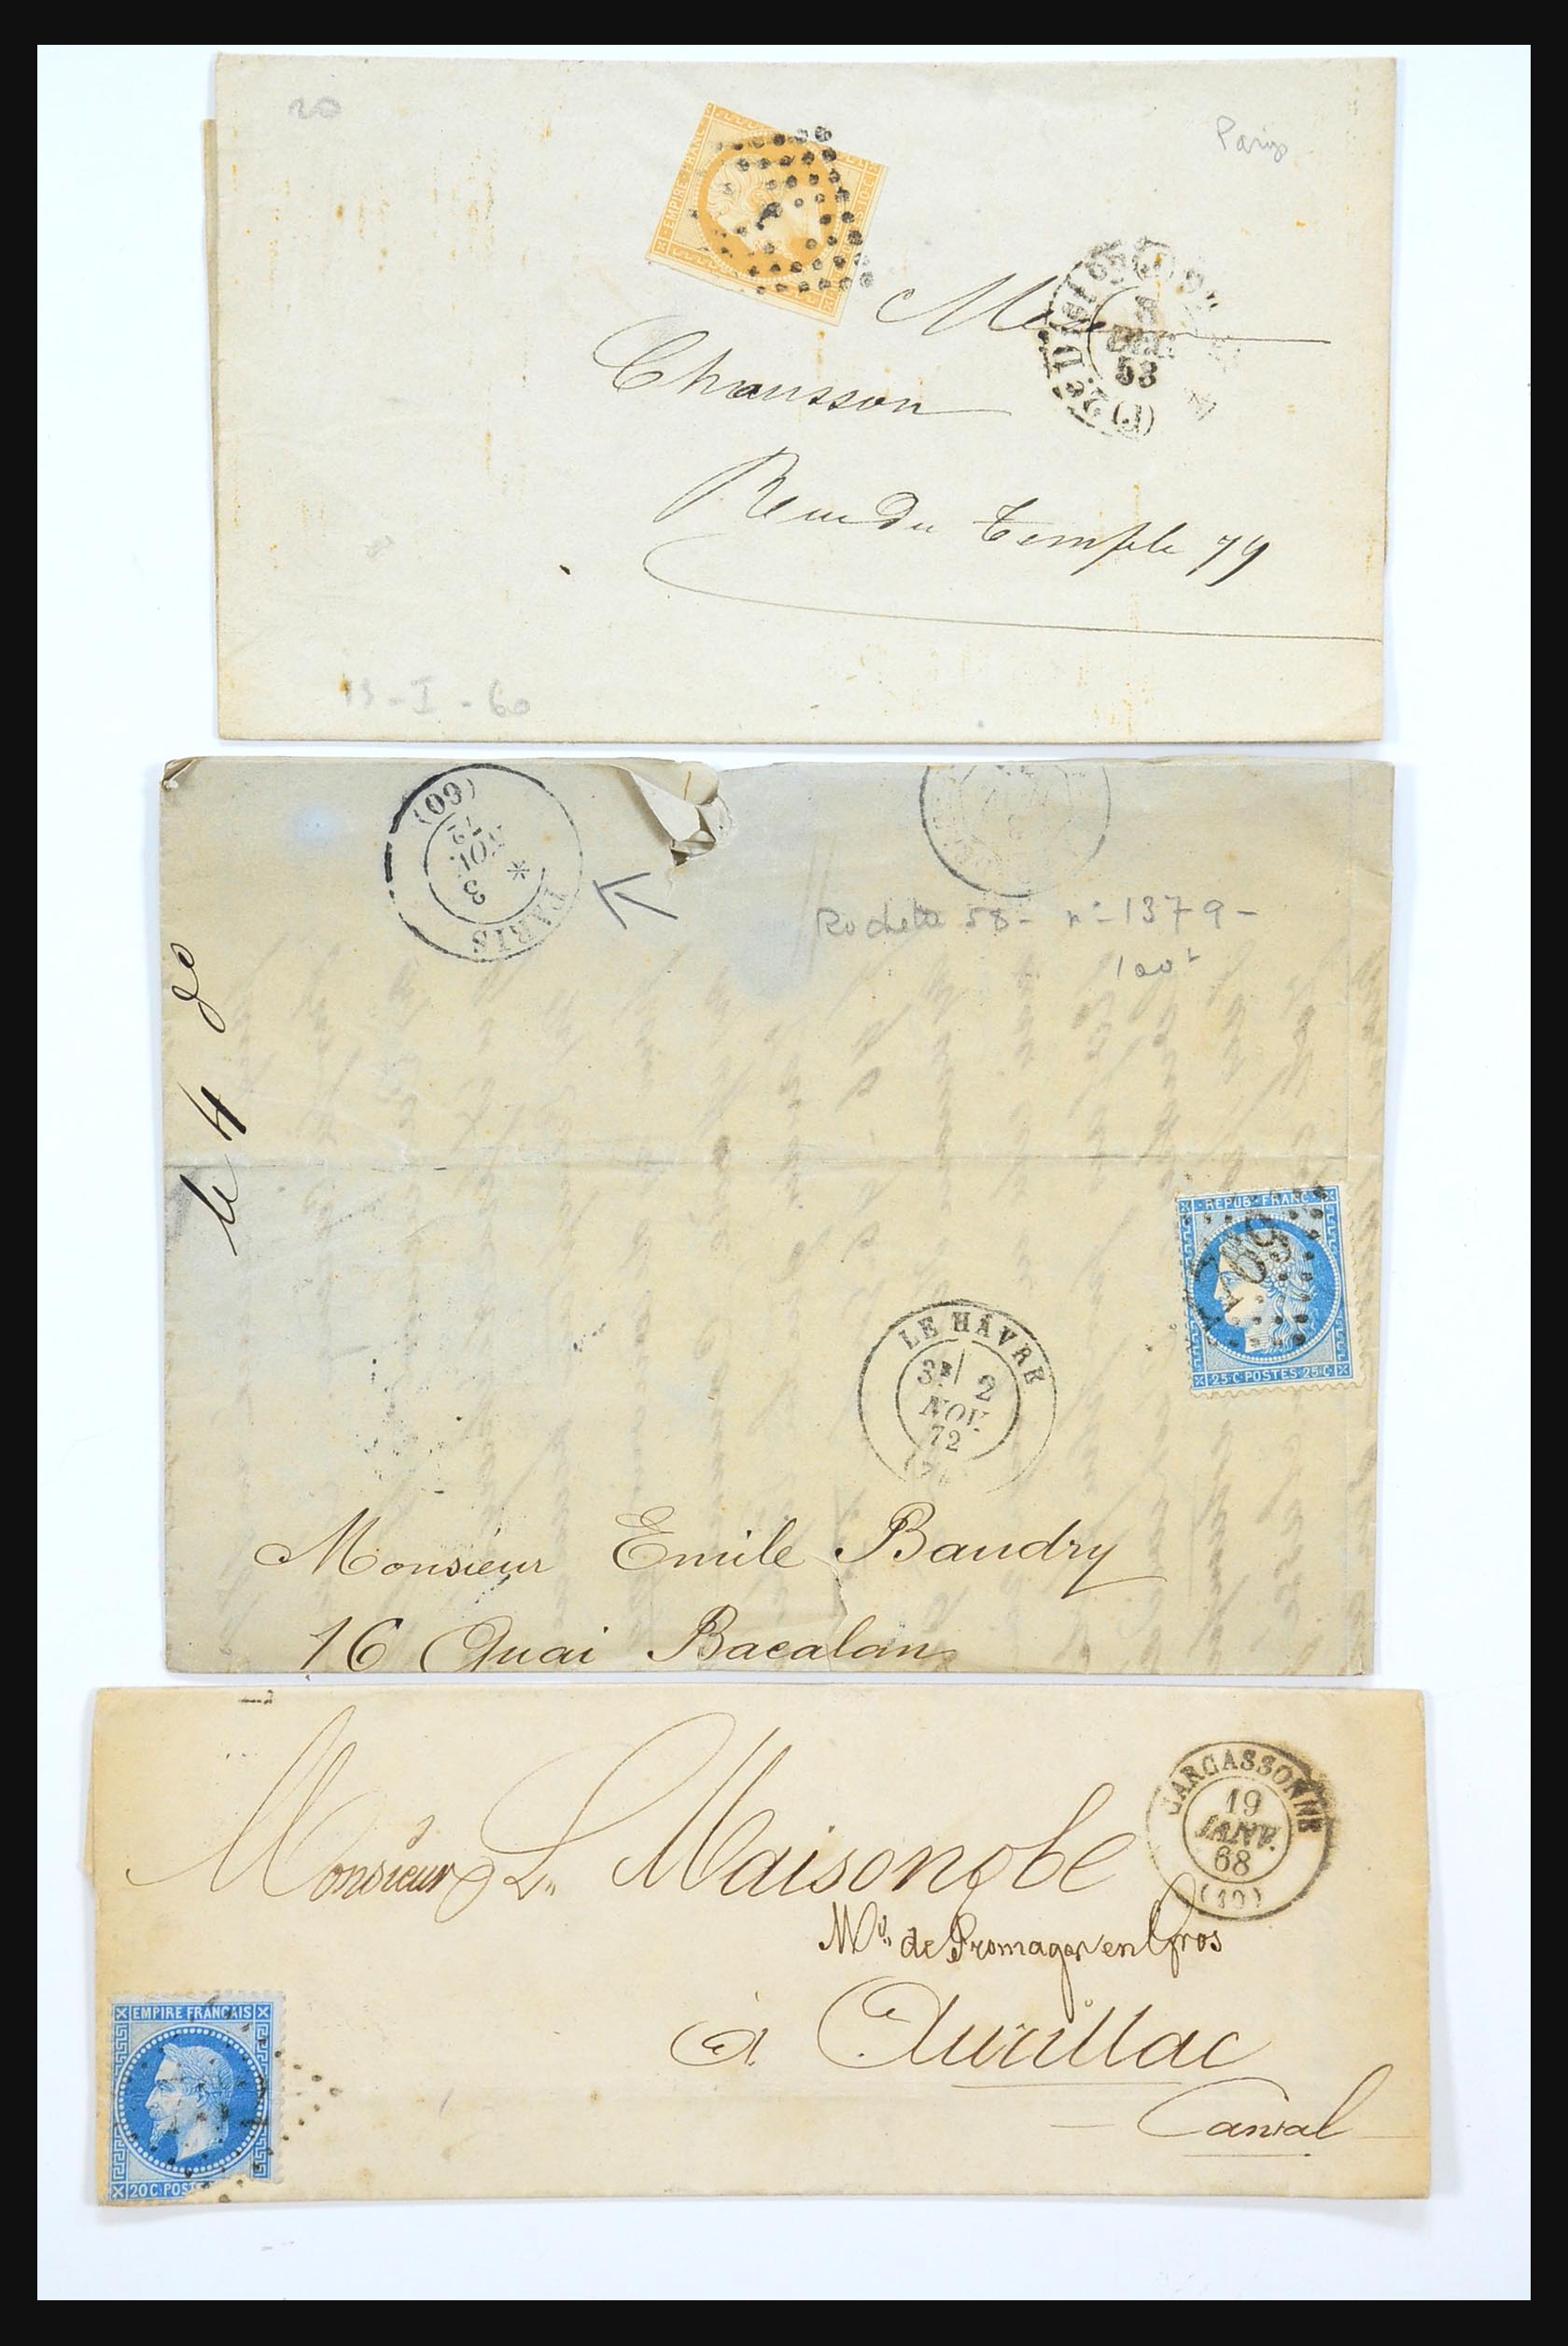 20
Paris
EMPIRE FRANC
8
DEC
53
Chausson
Rue du Temple 79
13-I-60
(60)
3
NOV.
72
PARIS
Rochette 58- n°-1379-
le 4
REPUB. FRANC.
1769
25 C. POSTES 25 C.
LE HÂVRE
2
NOV.
72
Monsieur Emile Baudry
16 Quai Bacalan
CARCASSONNE
19
JANV.
68
(10)
Monsieur L. Maisonobe
Md. de Fromages en Gros
à Aurillac
Cantal
EMPIRE FRANÇAIS
20 C. POST